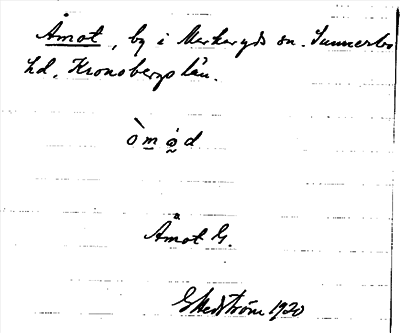 Åmot, by i Markaryds sn. Sunnerbo
hd, Kronobergs län.
òmȯd
Åmot G.
G Hedström 1920